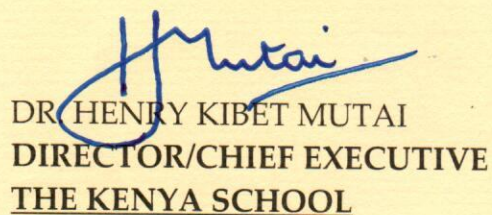 HMutai
DR. HENRY KIBET MUTAI
DIRECTOR/CHIEF EXECUTIVE
THE KENYA SCHOOL